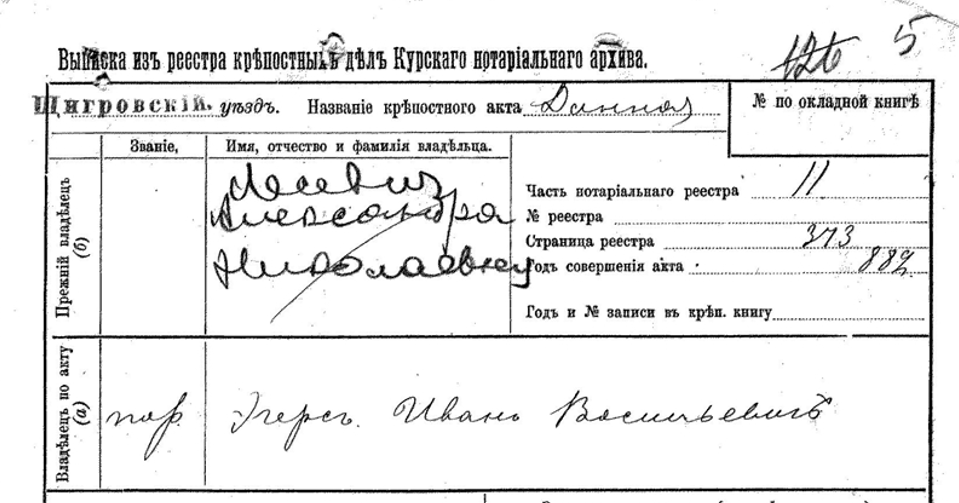 126 5
Выписка изъ реестра крѣпостныхъ дѣлъ Курскаго нотаріальнаго архива.
Щигровскій. уѣздъ. Названіе крѣпостного акта Данная
№ по окладной книгѣ
Званіе, Имя, отчество и фамилія владѣльца.
Прежній владѣлецъ (б)
Лесевиц
Александра
Николаевна
Часть нотаріальнаго реестра 11
№ реестра
Страница реестра 373
Годъ совершенія акта 882
Годъ и № записи въ крѣп. книгу
Владѣлецъ по акту (а)
пор. Эгерсъ. Иванъ Васильевичъ